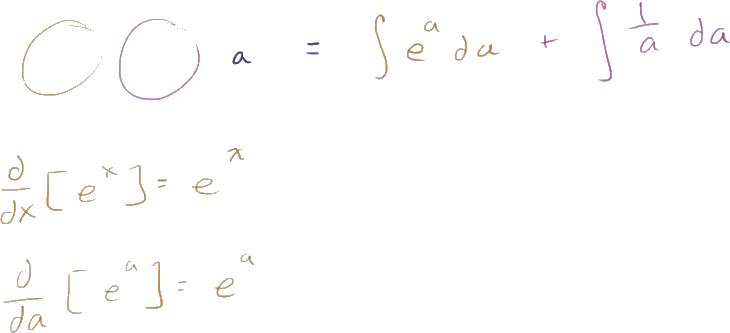 a = ∫ e^a da + ∫ 1/a da
d/dx [e^x] = e^x
d/da [e^a] = e^a